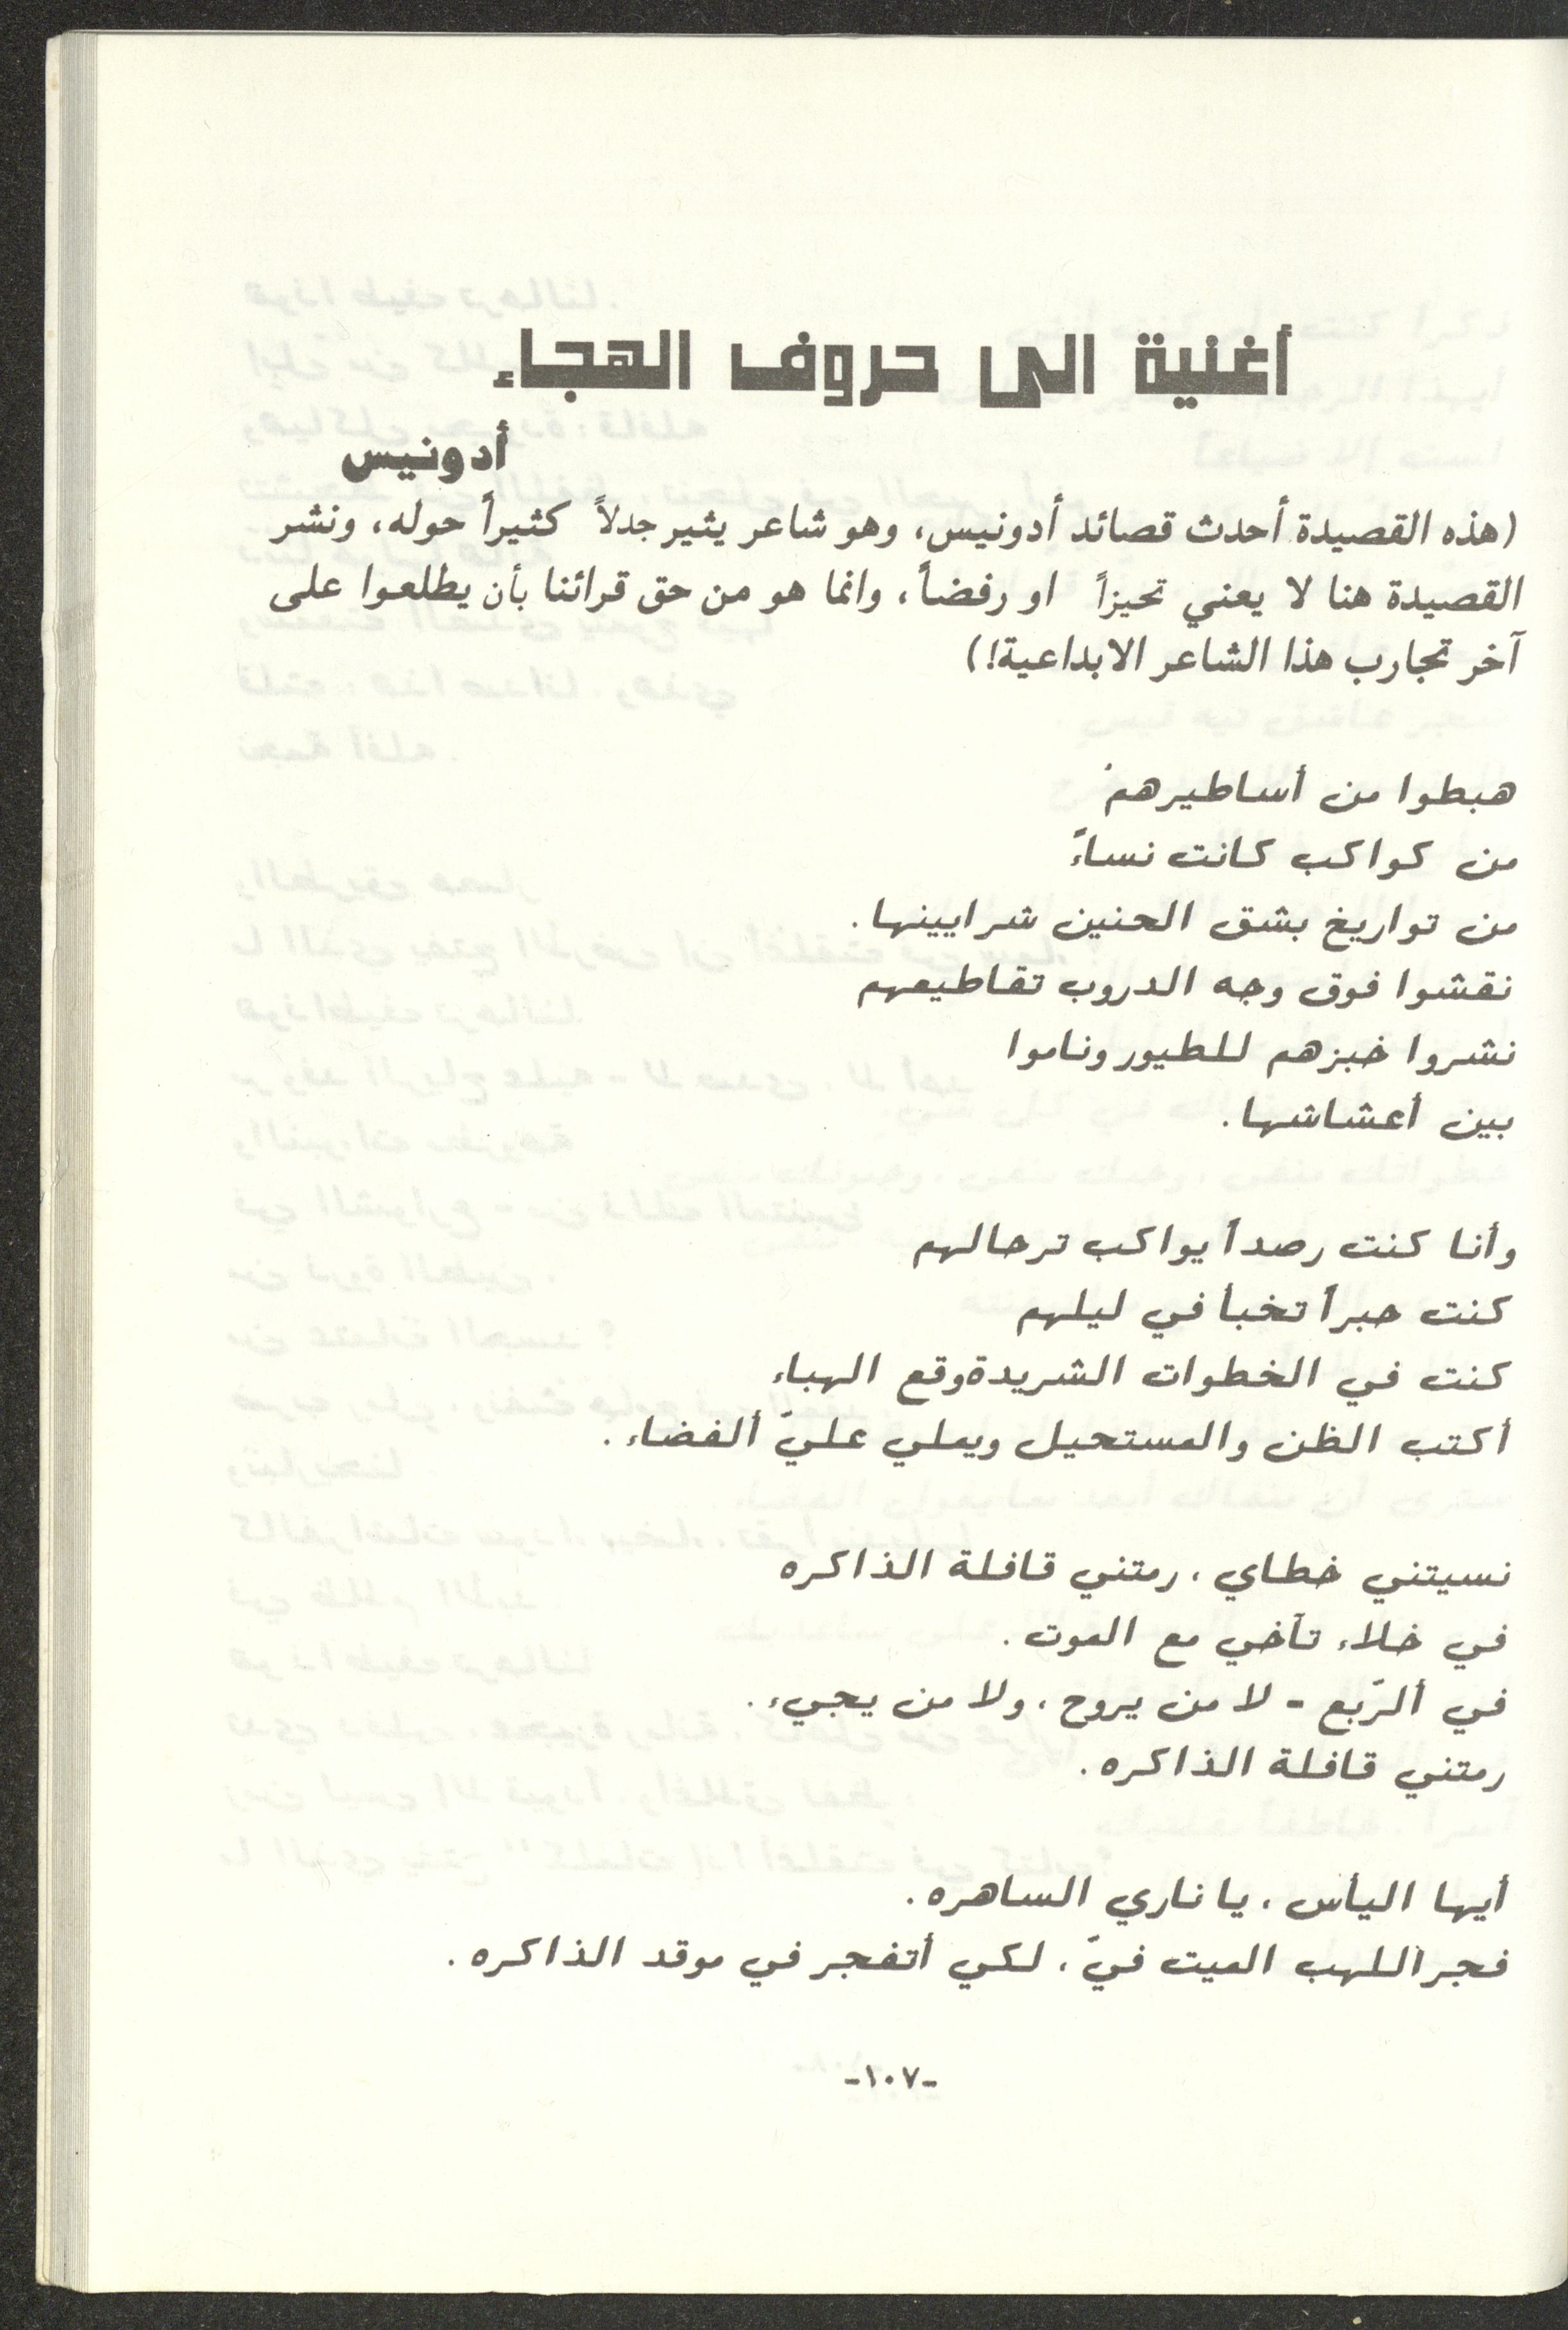 أغنية الى حروف الهجاء
أدونيس
(هذه القصيدة أحدث قصائد أدونيس، وهو شاعر يثير جدلاً كثيراً حوله، ونشر
القصيدة هنا لا يعني تحيزاً او رفضاً، وانما هو من حق قرائنا بأن يطلعوا على
آخر تجارب هذا الشاعر الابداعية!)
هبطوا من أساطيرهمْ
من كواكب كانت نساءً
من تواريخ بشق الحنين شرايينها.
نقشوا فوق وجه الدروب تقاطيعهم
نشروا خبزهم للطيور وناموا
بين أعشاشها.
وأنا كنت رصداً يواكب ترحالهم
كنت حبراً تخبأ في ليلهم
كنت في الخطوات الشريدة وقع الهباء
أكتب الظن والمستحيل ويملي عليّ ألفضاء.
نسيتني خطاي، رمتني قافلة الذاكره
في خلاء تآخي مع الموت.
في ألرّبع - لا من يروح، ولا من يجيء.
رمتني قافلة الذاكره.
أيها اليأس، يا ناري الساهره.
فجر اللهب الميت فيّ، لكي أتفجر في موقد الذاكره.
-١٠٧-